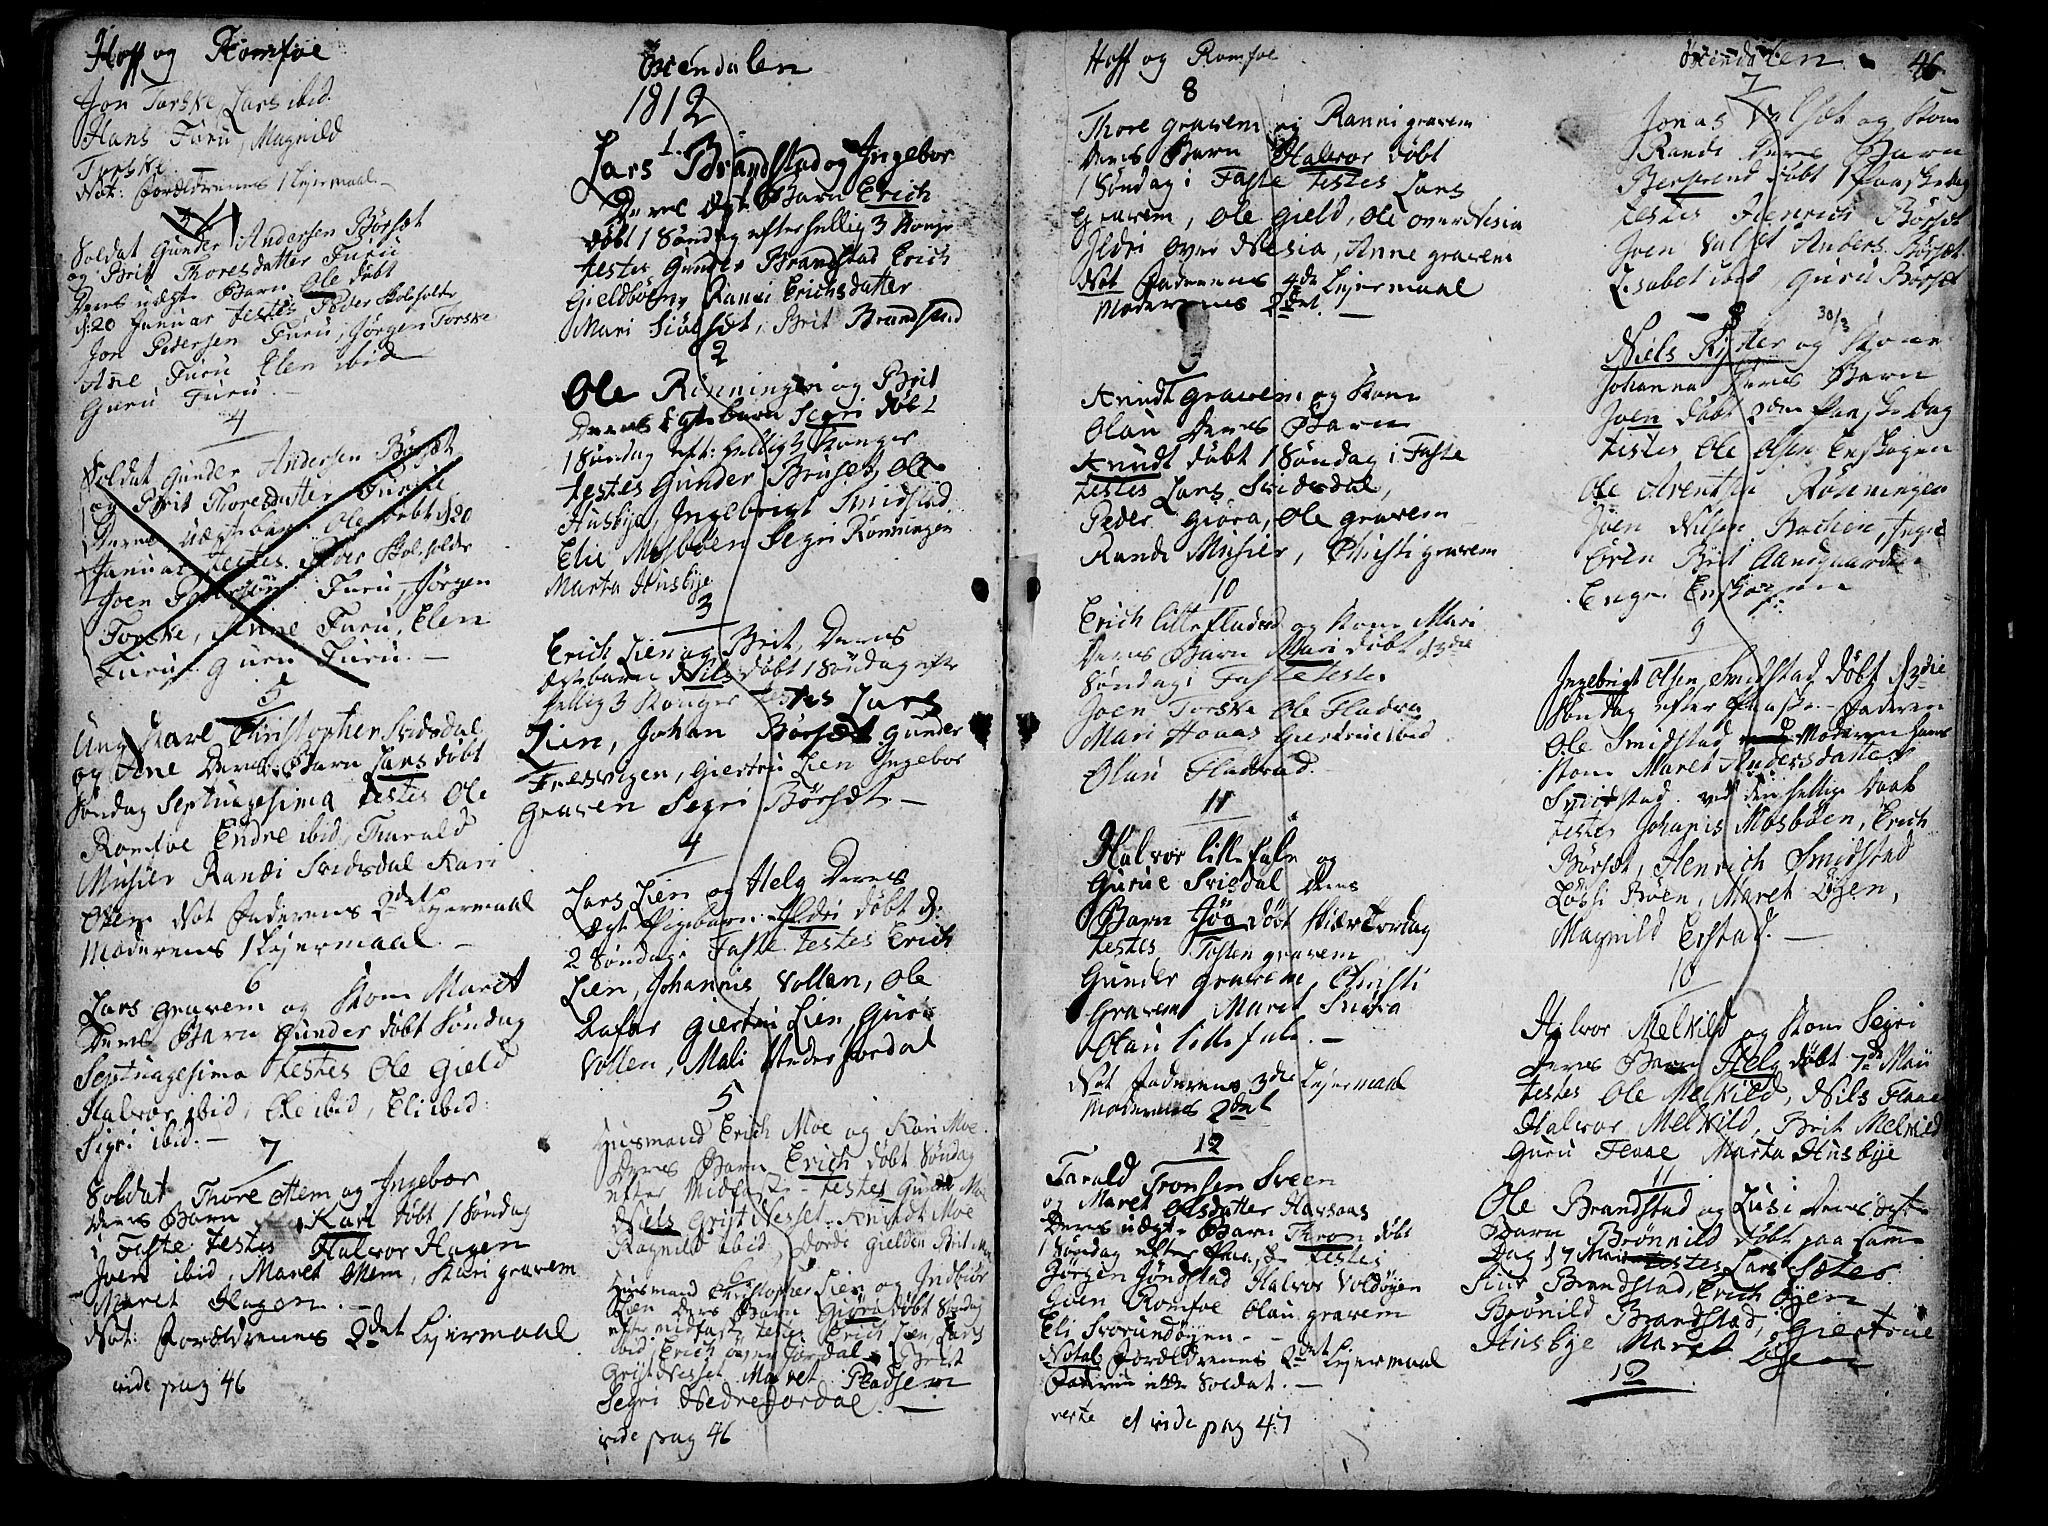 Hoff og Romfoe
Jon Torske, Lars ibid.
Hans Furu, Magnild
Torske. —
Not: Forældrenes 1 Lejermaal. —
3
Soldat Gunder Andersen Börsæt
og Brit Thoresdatter Furu
Deres uægte Barn Ole döbt
d: 20 Januar testes, Peder Skolholder
Jon Pedersen Furu, Jörgen Torske
Ane Furu Elen ibid
Guru Furu. —
4
Soldat Gunder Andersen Börsæt
og Brit Thoresdatter Furue
Deres uægte barn Ole döbt d 20
Januar testes. Skolholder
Joen Pedersön Furu, Jörgen
Torske, Anne Furu, Elen
Furu. Guru Furu. —
5
Ung Karl Christopher Svidsdal
og Ane Deres Barn Lars döbt
Söndag Septuagesima testes Ole
Romfoe Endre ibid, Tharald
Musier Randi Svidsdal Kari
Not Faderens 2det Lejermaal
Moderens 1 Lejermaal. —
6
Lars Gravem og Kone Maret
Deres Barn Gunder döbt Söndag
Septuagesima testes Ole Gield
Halvor ibid, Ole ibid, Eli ibid:
Sigri ibid. —
7
Soldat Thore Mem og Ingebor
Deres Barn Kari döbt 1 Söndag
i Faste testes Halvor Hagen
Joen ibid, Maret Mem, Kari Gravem
Maret Hagen. —
Not: Forældrenes 2det Lejermaal
vide pag 46
Öxendalen
1812
1.
Lars Brandstad og Ingebor
Deres ægte Barn Erich
döbt 1 Söndag efter hellig 3 Konger
testes Gunder Brandstad Erich
Gieldböeng Randi Erichsdatter
Mari Siölset, Brit Brandstad
2
Ole Rönningen og Brit
Deres Egte barn Segri döbt
1 Sündag eft: hellig 3 Konger
testes Gunder Bruset, Ole
Husbye, Ingebrigt Smidstad
Elie Mosböen Segri Rönningen
Marta Husbye
3
Erich Lien og Brit, Deres
Egtebarn Nils döbt 1 Söndag efter
hellig 3 Konger testes Lars
Lien, Johan Börsæt Gunder
Fresvigen, Giertru Lien Ingebor
Graven Segri Börsæt —
4
Lars Lien og Helg Deres
Ægte Pigebarn Ildri döbt d:
2 Söndag i Faste testes Erich
Lien, Johannis Vollen, Ole
Rafar Giertru Lien, Guru
Vollen, Mali Nedre Jordal
5
Husmand Erich Moe og Kari Moe.
Deres Barn Erich döbt Söndag
efter Midfast testes Gunder Moe
Niels Grist Nesset Knudt Moe
Ragnild ibid, Dorde Gielden Brit Moe
6
Husmand Christopher Lien og Indbiör
Lien Deres Barn Giöra döbt Söndag
efter midfast testes Erich Lien, Lars
ibid, Erich över Jordal, Brit
Gristnesset Maret Pladsen
Segri Nedre Jordal —
vide pag 46
Hoff og Romfoe
8
Thore Gravem og Ranni Gravem
Deres Barn Halvor döbt
1 Söndag i Faste testes Lars
Gravem, Ole Gield, Ole over Nesia
Ildri over Nesia, Anne Gravem
Not Faderens 4de Lejermaal
Moderens 2det. —
Knudt Gravem, og Kone
Olau Deres Barn
Knudt döbt 1 Söndag i Faste
testes Lars Svidsdal,
Peder Giöra, Ole Gravem
Randi Musier, Christi Gravem
10
Erich Lille Fladvad og Kone Mari
Deres Barn Mari döbt d 3die
Söndag i Faste testes
Joen Torske Ole Fladva
Mari Hovas Giertrue ibid
Olau Fladvad. —
11
Halvor Lille Fale og
Gurue Svisdal Deres
Barn Jöa döbt Skiærtordag
testes Tosten Gravem
Gunder Gravem, Christi
Gravem Maret Snöva
Olau Lille Fale. —
Not Faderens 3die Lejermaal
Moderens 2det
12
Tarald Tronsen Sveen
og Maret Olsdatter Havsaas
Deres uægte Barn Thron döbt
1 Söndag efter Paaske testes
Görgen Jöndstad Halvor Voldöyen
Gien Romfoe Olau Gravem
Eli Svorundöyen. —
Nota Forældrenes 2det Lejermaal
Faderen ikke Soldat. —
verte et vide pag 47
Öxendalen 46
7
Jonas Valset og Kone
Randi Deres Barn
Berprend döbt 1 Paaskedag
testes Henrich Börsæt
Joen Valset Anders Börsæt
Lisabet ibid Guru Börsæt
8 30/3
Niels Ryder og Kone
Johanna Deres Barn
Joen döbt 2den Paaskedag
testes Ole Olsen Enskogen
Ole Arentsen Rönningen
Joen Nilsen Bachen, Ingri
Ören Brit Aandgaarden
Enge Enskogen
9
Ingebrigt Olsen Smidstad döbt d 3die
Söndag efter Paaske Faderen
Ole Smidstad Moderen hans
Kone Maret Andersdatter
Smidstad ved den hellige Daab
testes Johanis Mosböen, Erich
Börsæt, Henrich Smidstad
Lösse Böen, Maret Öyen,
Magnild Erstad. —
10
Halvor Melkild og Kone Segri
Deres Barn Helg döbt 7de Maii
testes Ole Melkild, Nils Flaae
Halvor Melkild, Brit Melkild
Guru Flaae Marta Husbye
11
Ole Brandstad og Lusi Deres Egte
Barn Brönnild döbt paa samme
Dag d 7 Maii testes Lars Sæter
Siur Brandstad, Erich Öyen
Brönild Brandstad, Giertrue
Husbye Maret Öyen
12